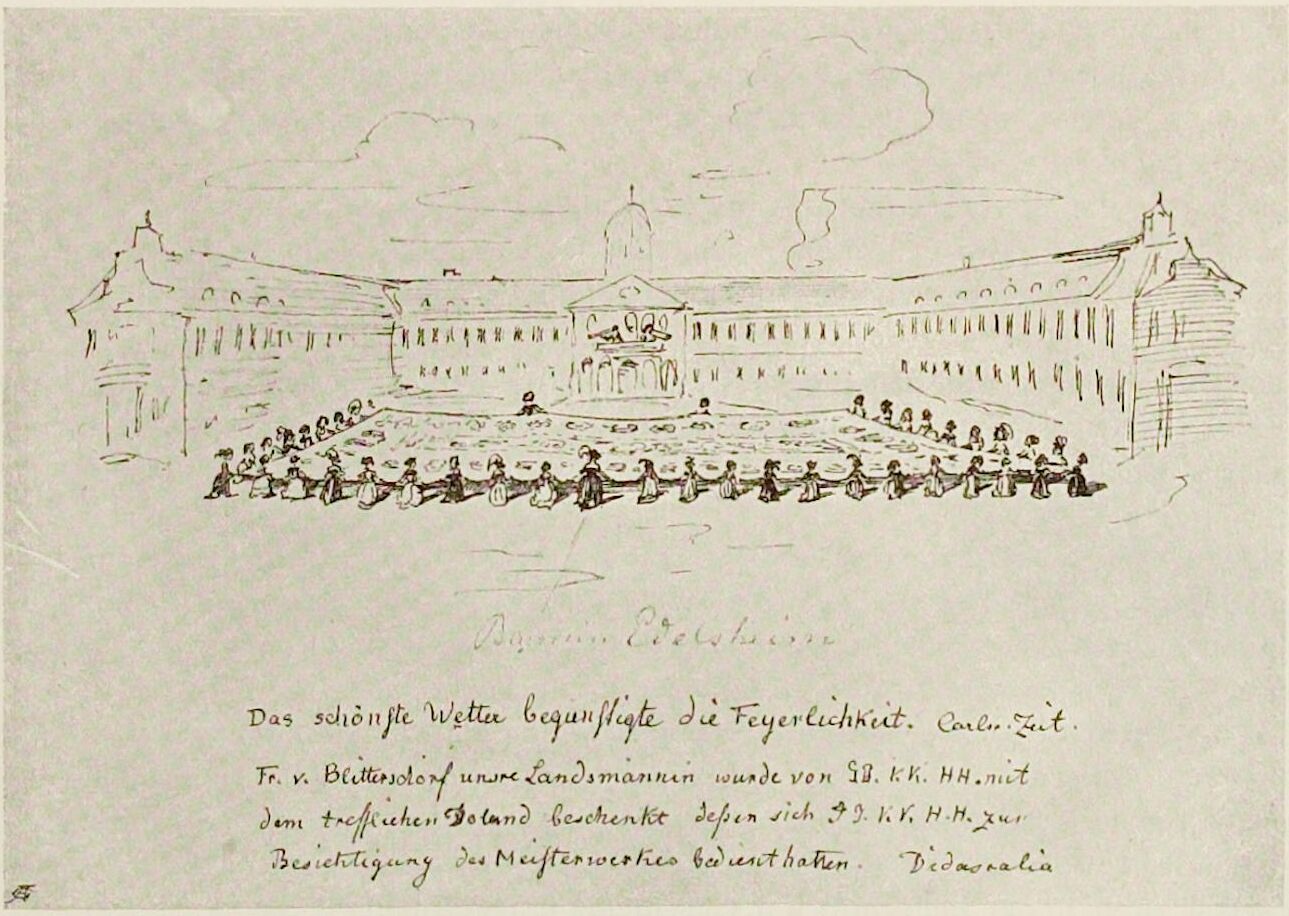 Baronin Edelsheim
Das schönste Wetter begünstigte die Feyerlichkeit. Carlsr. Zeit.
Fr. v. Blittersdorf unsre Landsmännin wurde von KK. HH. mit
dem trefflichen Doland beschenkt deßen sich KK. H.H. zur
Besichtigung des Meisterwerkes bedient hatten. Didascalia